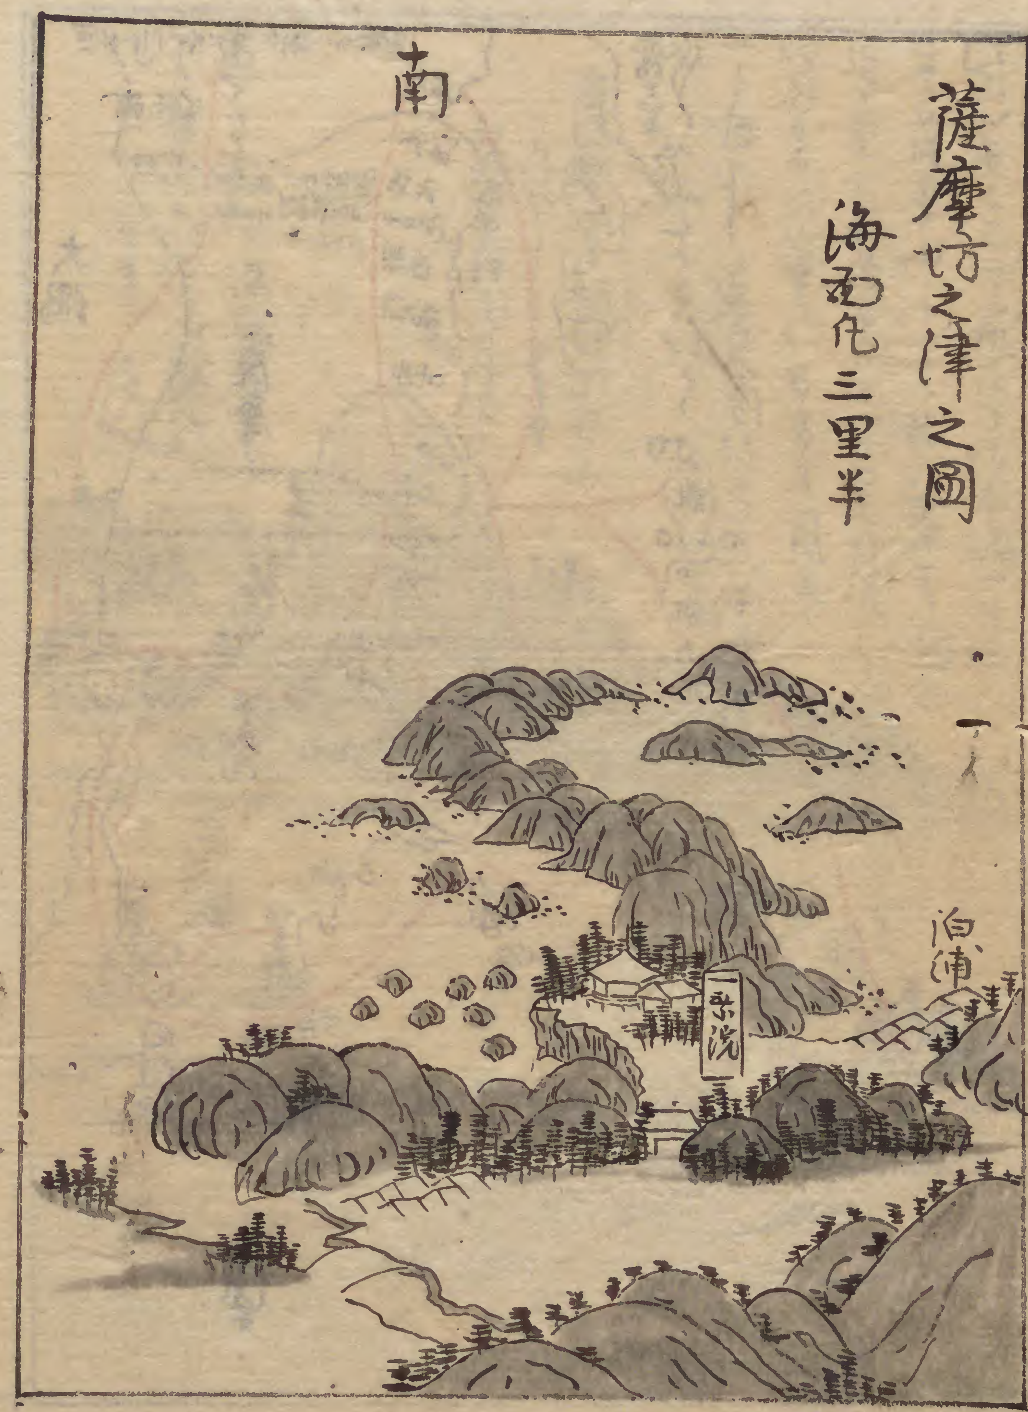 薩摩坊之津之圖
海面凡三里半
南
泊浦
一乗院